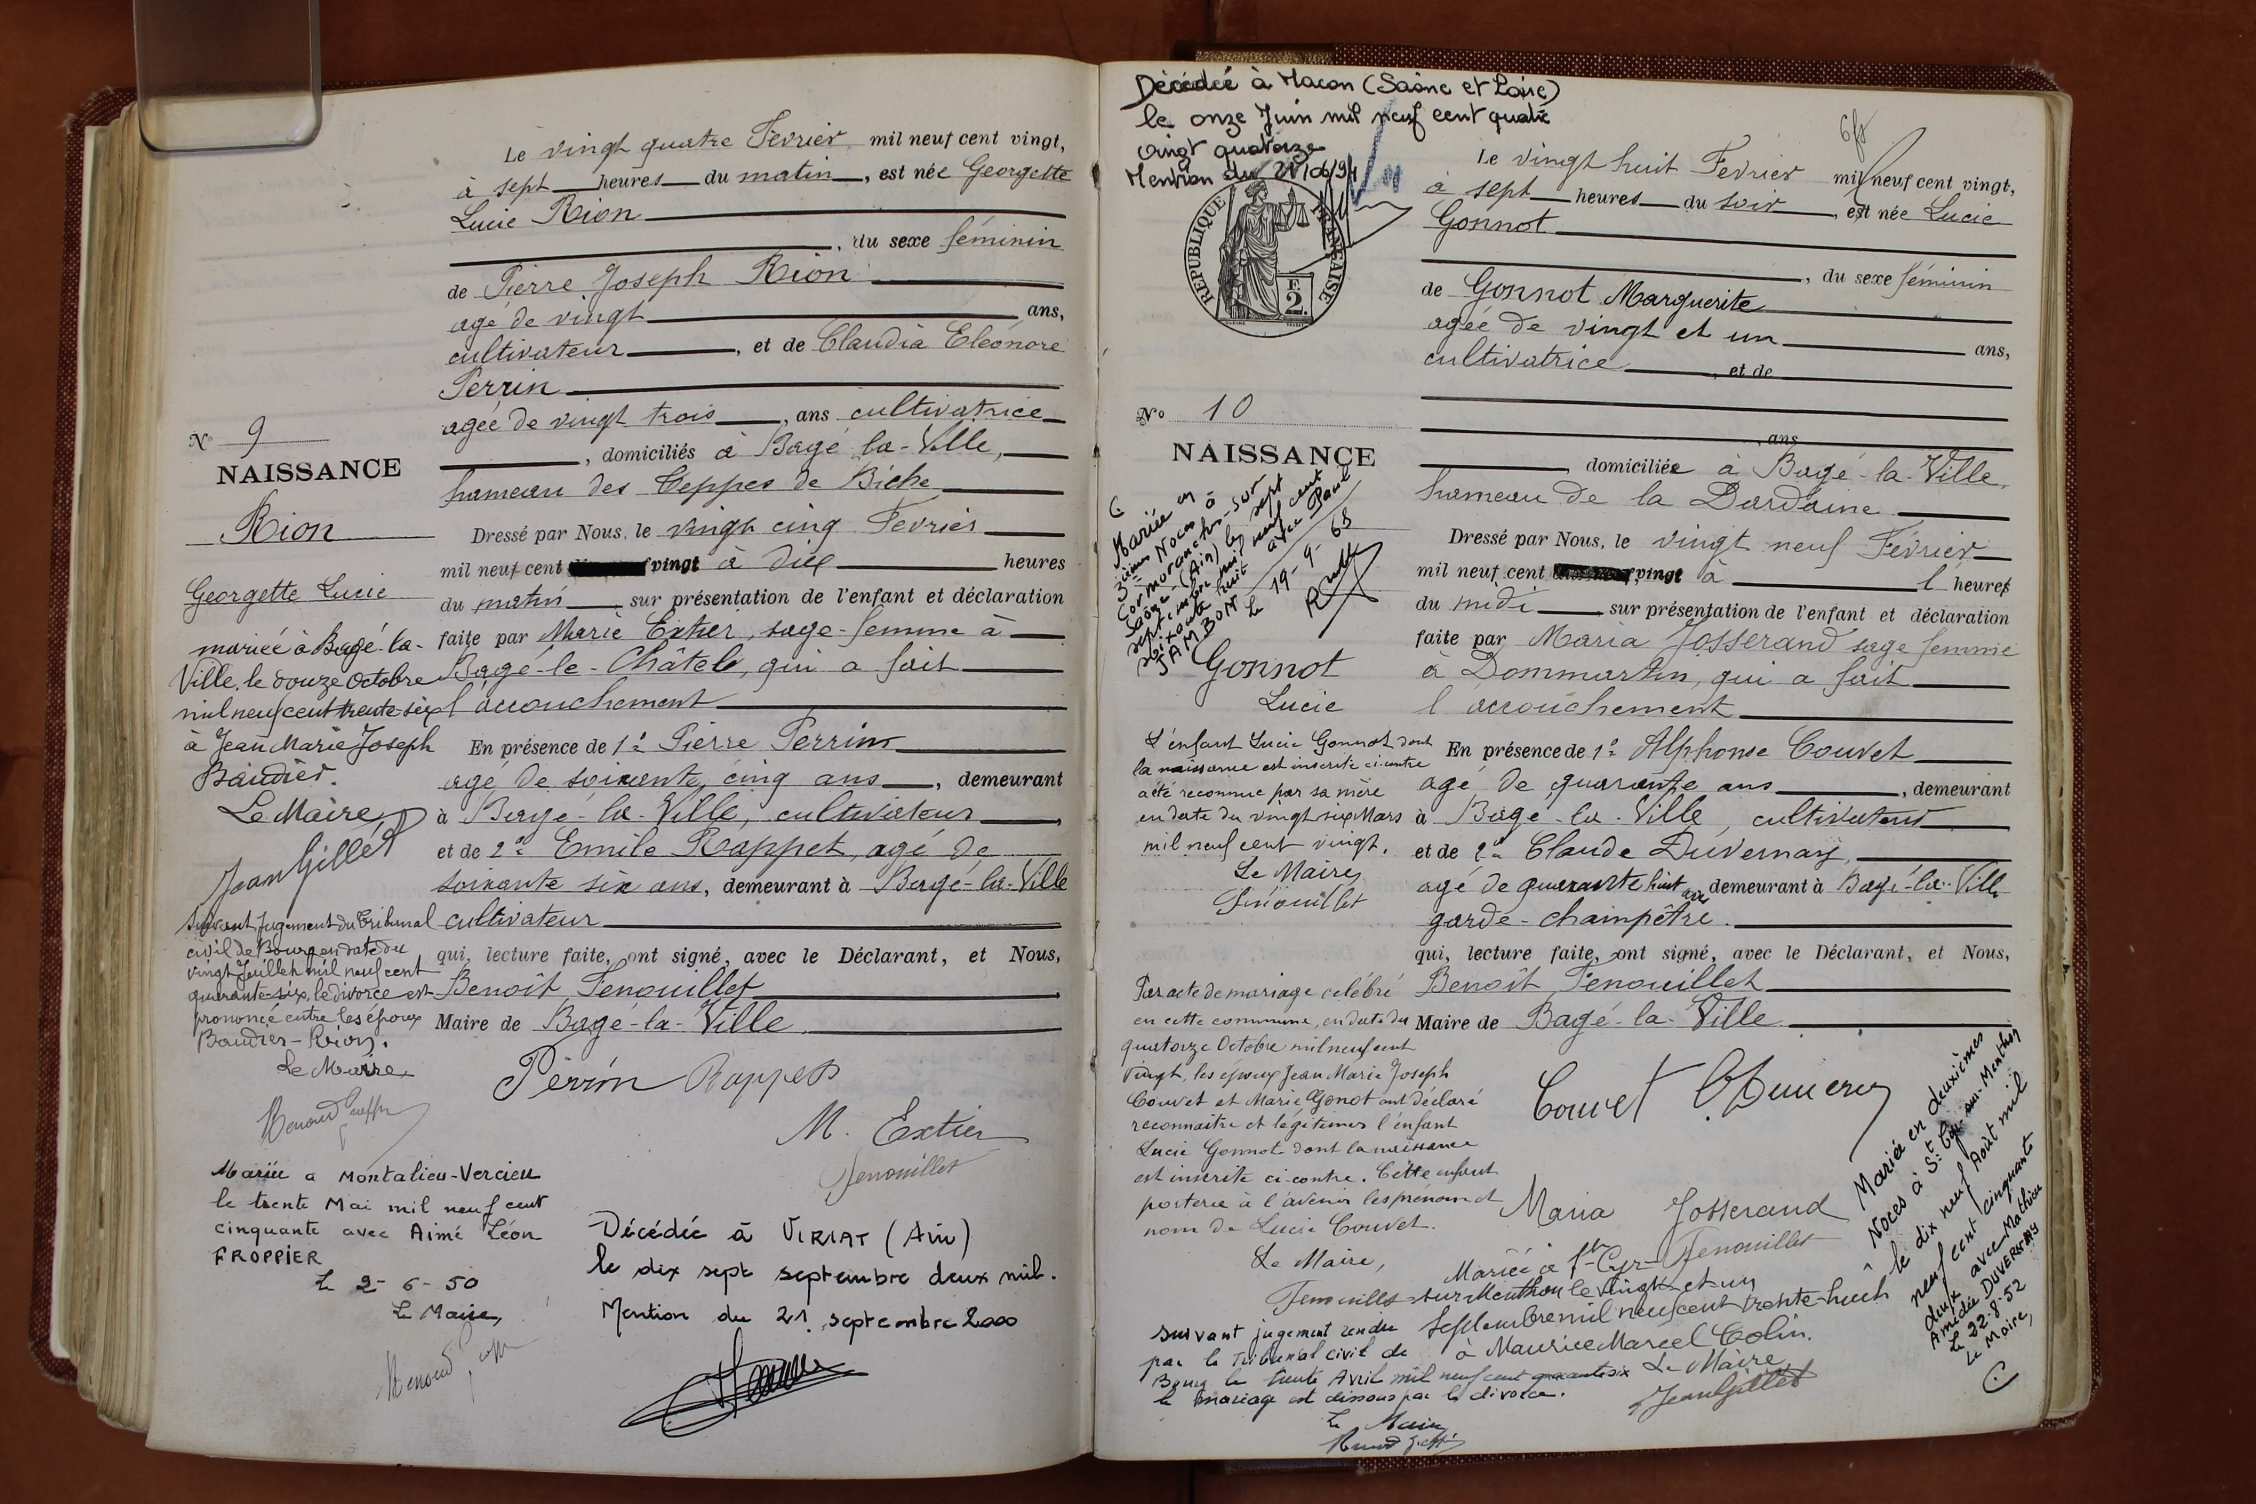 Le vingt quatre Fevrier mil neuf cent vingt,
à sept heures du matin, est née Georgette
Lucie Rion
, du sexe féminin
de Pierre Joseph Rion
agé de vingt ans,
cultivateur, et de Claudia Eléonore
Perrin
agée de vingt trois, ans cultivatrice
, domiciliés à Bagé-la-Ville,
hameau des Teppes de Biche
Dressé par Nous, le vingt cinq Fevrier
mil neuf cent vingt à dix heures
du matin sur présentation de l'enfant et déclaration
faite par Marie Extier, sage-femme à
Bagé-le-Châtel, qui a fait
l'accouchement
En présence de 1º Pierre Perrin
agé de soixante cinq ans, demeurant
à Bagé-la-Ville, cultivateur,
et de 2º Emile Rappet, agé de
soixante six ans, demeurant à Bagé-la-Ville
cultivateur
qui, lecture faite, ont signé, avec le Déclarant, et Nous,
Benoît Fenouillet
Maire de Bagé-la-Ville
Perrin Rappet
M. Extier
Fenouillet
Nº 9
NAISSANCE
Rion
Georgette Lucie
mariée à Bagé-la-
Ville, le douze octobre
mil neuf cent trente-six
à Jean Marie Joseph
Baudier.
Le Maire,
Jean Gillet
Suivant Jugement du Tribunal
civil de Bourg en date du
vingt Juillet mil neuf cent
quarante-six, le divorce est
prononcé entre les époux
Baudier-Rion.
Le Maire,
Mariée a Montalieu-Vercieu
le trente Mai mil neuf cent
cinquante avec Aimé Léon
FROPPIER
Le 2-6-50
Le Maire,
Décédée à VIRIAT (Ain)
le dix sept septembre deux mil.
Mention du 21 septembre 2000
Décédée à Macon (Saône et Loire)
le onze Juin mil neuf cent quatre
vingt quatorze
Mention du 21/06/94
REPUBLIQUE FRANÇAISE
F.
2.
Le vingt huit Fevrier mil neuf cent vingt,
à sept heures du soir, est née Lucie
Gonnot
, du sexe féminin
de Gonnot Marguerite
agée de vingt et un ans,
cultivatrice, et de
, ans
, domiciliée à Bagé-la-Ville,
hameau de la Dardaine
Dressé par Nous, le vingt neuf Février
mil neuf cent vingt à l heures
du midi sur présentation de l'enfant et déclaration
faite par Maria Josserand sage femme
à Dommartin, qui a fait
l'accouchement
En présence de 1º Alphonse Couvet
agé de quarante ans, demeurant
à Bagé-la-Ville, cultivateur
et de 2º Claude Duvernay,
agé de quarante huit ans demeurant à Bagé-la-Ville
garde-champêtre.
qui, lecture faite, ont signé, avec le Déclarant, et Nous,
Benoît Fenouillet
Maire de Bagé-la-Ville
Couvet
Maria Josserand
Fenouillet
Nº 10
NAISSANCE
Mariée en
3ièmes Noces à
Cormoranche-sur
Saône (Ain) le sept
septembre mil neuf cent
soixante huit avec Paul
JAMBON le 19-9-68
Gonnot
Lucie
L'enfant Lucie Gonnot dont
la naissance est inscrite ci-contre
a été reconnue par sa mère
en date du vingt six Mars
mil neuf cent vingt.
Le Maire,
Fenouillet
Par acte de mariage célébré
en cette commune, en date du
quatorze Octobre mil neuf cent
vingt, les époux Jean Marie Joseph
Couvet et Marie Gonot ont déclaré
reconnaitre et légitimer l'enfant
Lucie Gonnot dont la naissance
est inscrite ci-contre. Cette enfant
portera à l'avenir les prénom et
nom de Lucie Couvet.
Le Maire,
Fenouillet
Mariée à St-Cyr-
sur Menthon le vingt et un
Septembre mil neuf cent trente-huit
à Maurice Marcel Colin.
Le Maire,
Jean Gillet
Suivant jugement rendu
par le Tribunal civil de
Bourg le trente Avril mil neuf cent quarante six
le mariage est dissous par le divorce.
Le Maire
Mariée en deuxièmes
Noces à St-Cyr-sur-Menthon
le dix neuf Août mil
neuf cent cinquante
deux avec Mathieu
Amédée DUVERNAY
Le 22-8-52
Le Maire,